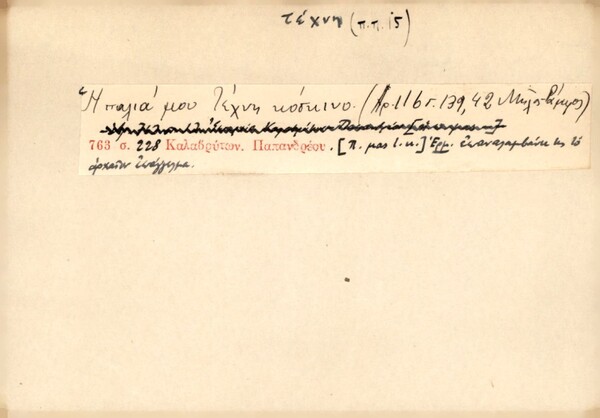 τέχνη (π.π. 15)
Ἡ παλιά μου Τέχνη κόσκινο. (Ἀρ. 116 σ. 139, 42 Μηλ-Βάμβος)
763 σ. 228 Καλαβρύτων. Παπανδρέου. [Π. μας λ. κ.] Ἑρμ. ἐπαναλαμβάνει τις τό
ἀρχαῖον ἐπάγγελμα.